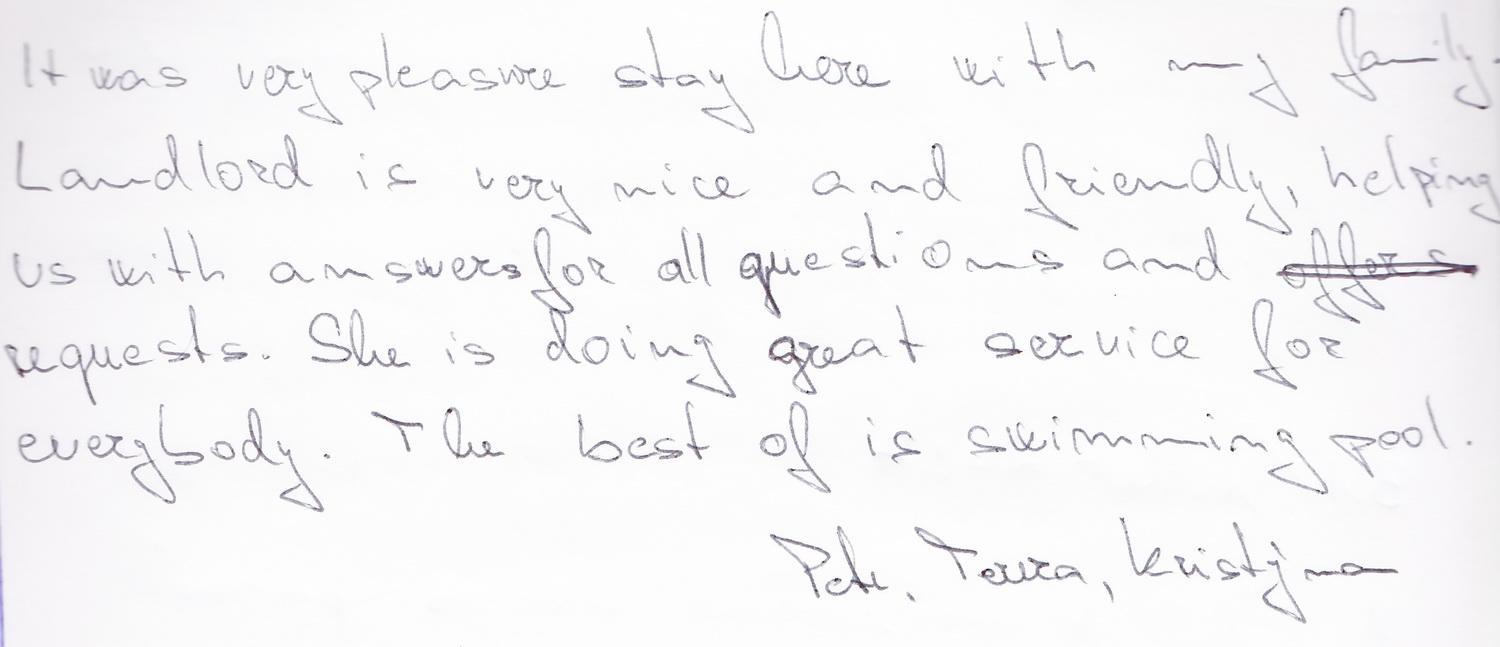 It was very pleasure stay here with my family.
Landlord is very nice and friendly, helping
us with answers for all questions and offers
requests. She is doing great service for
everybody. The best of is swimming pool.
Kristýna